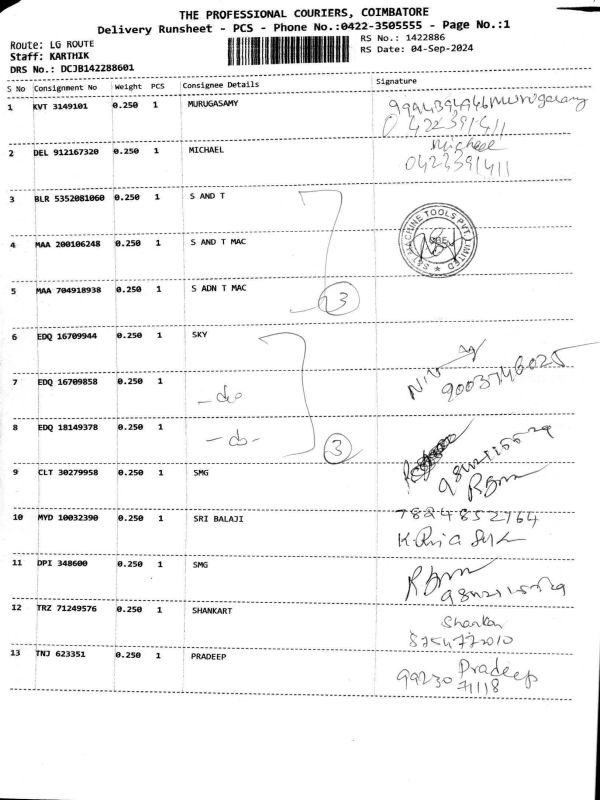 THE PROFESSIONAL COURIERS, COIMBATORE
Delivery Runsheet - PCS - Phone No.:0422-3505555 - Page No.:1
Route: LG ROUTE
RS No.: 1422886
Staff: KARTHIK
RS Date: 04-Sep-2024
DRS No.: DCJB142288601
S No Consignment No Weight PCS Consignee Details Signature
1 KVT 3149101 0.250 1 MURUGASAMY Murugasamy
0422391411
2 DEL 912167320 0.250 1 MICHAEL Micheal
0422391411
3 BLR 5352081060 0.250 1 S AND T
4 MAA 200106248 0.250 1 S AND T MAC S&T MACHINE TOOLS PVT. LIMITED
5 MAA 704918938 0.250 1 S ADN T MAC 3
6 EDQ 16709944 0.250 1 SKY
7 EDQ 16709858 0.250 1 -do- 9003746025
8 EDQ 18149378 0.250 1 -do- 3
9 CLT 30279958 0.250 1 SMG
10 MYD 10032390 0.250 1 SRI BALAJI 7824852764
11 DPI 348600 0.250 1 SMG
12 TRZ 71249576 0.250 1 SHANKART Shankar
13 TNJ 623351 0.250 1 PRADEEP Pradeep
99230 71118